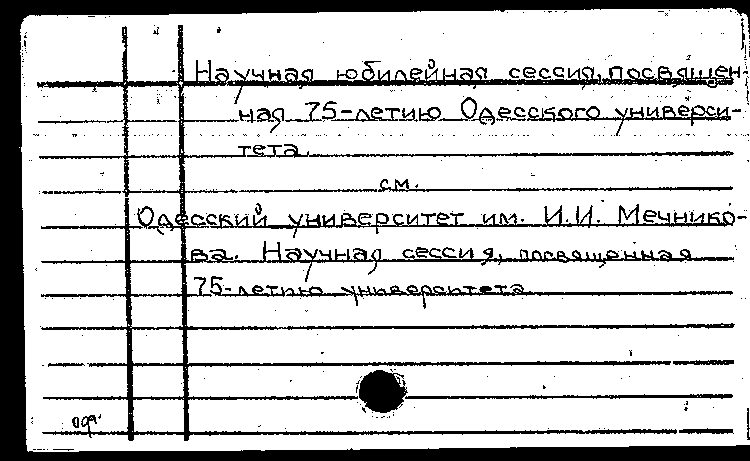 Научная юбилейная сессия, посвящен-
ная 75-летию Одесского универси-
тета.
см.
Одесский университет им. И.И. Мечнико-
ва. Научная сессия, посвященная
75-летию университета